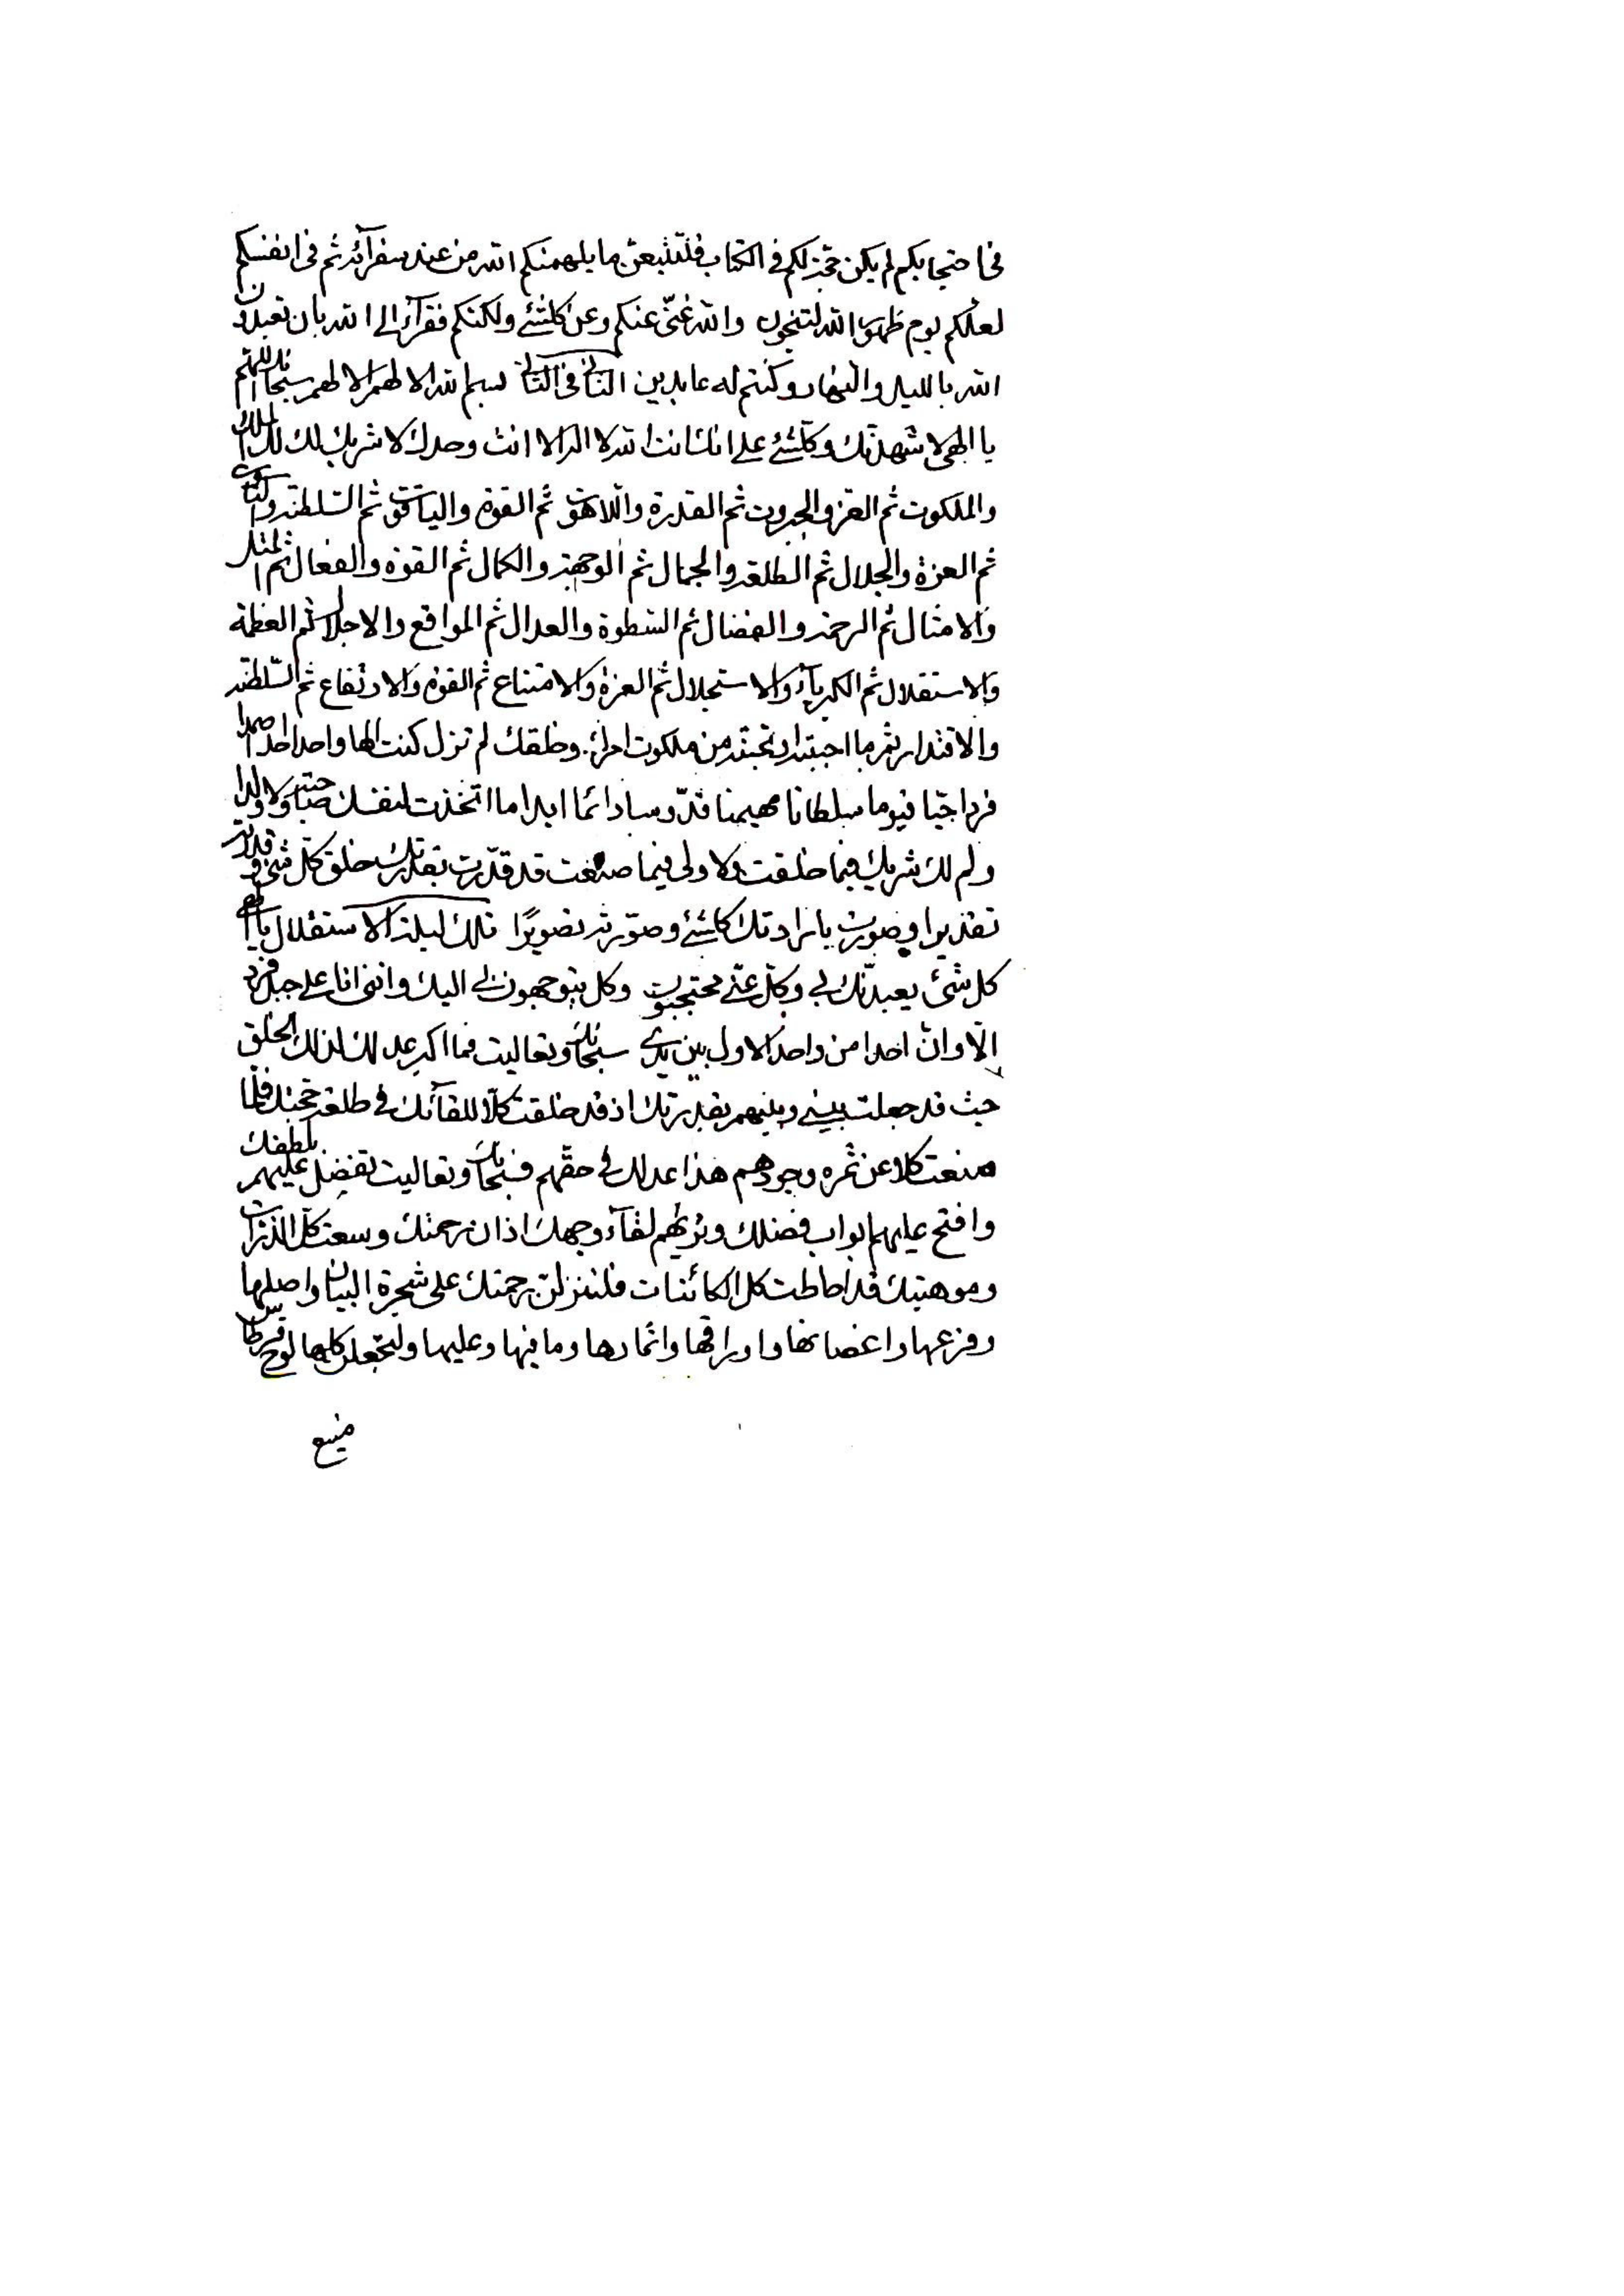 فی احتجابکم لم یکن حجة لکم فی الکتاب فلتتبعن ما یلهمنکم الله من عند سفرآئه ثم فی انفسکم
لعلکم یوم ظهور الله لتنجون والله غنی عنکم وعن کلشیٔ ولکنکم فقرآء الی الله بان تعبدون
الله باللیل والنهار وکنتم له عابدین الثانی فی الثانی بسم الله الاطهر الاطهر سبحانک اللهم
یا الهی لاشهدنک وکلشیٔ علی انک انت الله لا اله الا انت وحدک لا شریک لک لک الملک
والملکوت ثم العز والجبروت ثم القدرة واللاهوت ثم القوة والیاقوت ثم السلطنة والناسوت
ثم العزة والجلال ثم الطلعة والجمال ثم الوجهة والکمال ثم القوة والفعال ثم المثل
والامثال ثم الرحمة والفضال ثم السطوة والعدال ثم المواقع والاجلال ثم العظمة
والاستقلال ثم الکبریآء والاستجلال ثم العزة والامتناع ثم القوة والارتفاع ثم السلطنة
والاقتدار ثم ما احببته او تحبنه من ملکوت امرک وخلقک لم تزل کنت الها واحدا احدا صمدا
فردا حیا قیوما سلطانا مهیمنا قدوسا دائما ابدا ما اتخذت لنفسک صاحبة ولا ولدا
ولم لک شریک فیما خلقت ولا ولی فیما صنعت قد قدرت بقدرتک خلق کل شیٔ وقدرته
تقدیرا وصورت بارادتک کلشیٔ وصورته تصویرًا تلک لیلة الاستقلال یا الهی
کل شیٔ یعبدنک بی وکل عنی محتجبون وکل یتوجهون بی الیک واننی انا علی جبل فرد
الآ وان احدا من واحد الاول بین یدی سبحانک وتعالیت فما اکبر عدلک لذلک الخلق
حیث قد جعلت بینی وبینهم بقدرتک اذ قد خلقت کلا للقآئک فی طلعة حجتک فلما
منعت کلا عن ثمرة وجودهم هذا عدلک فی حقهم فسبحانک وتعالیت تفضل علیهم بلطفک
وافتح علیهم ابواب فضلک وبربهم لقآء وجهک اذ ان رحمتک وسعت کل الذرات
وموهبتک قد احاطت کل الکائنات فلتنزلن رحمتک علی شجرة البیان واصلها
وفرعها واغصانها واوراقها واثمارها وما فیها وعلیها ولتجعلن کلها لوح قرطاس
منیع